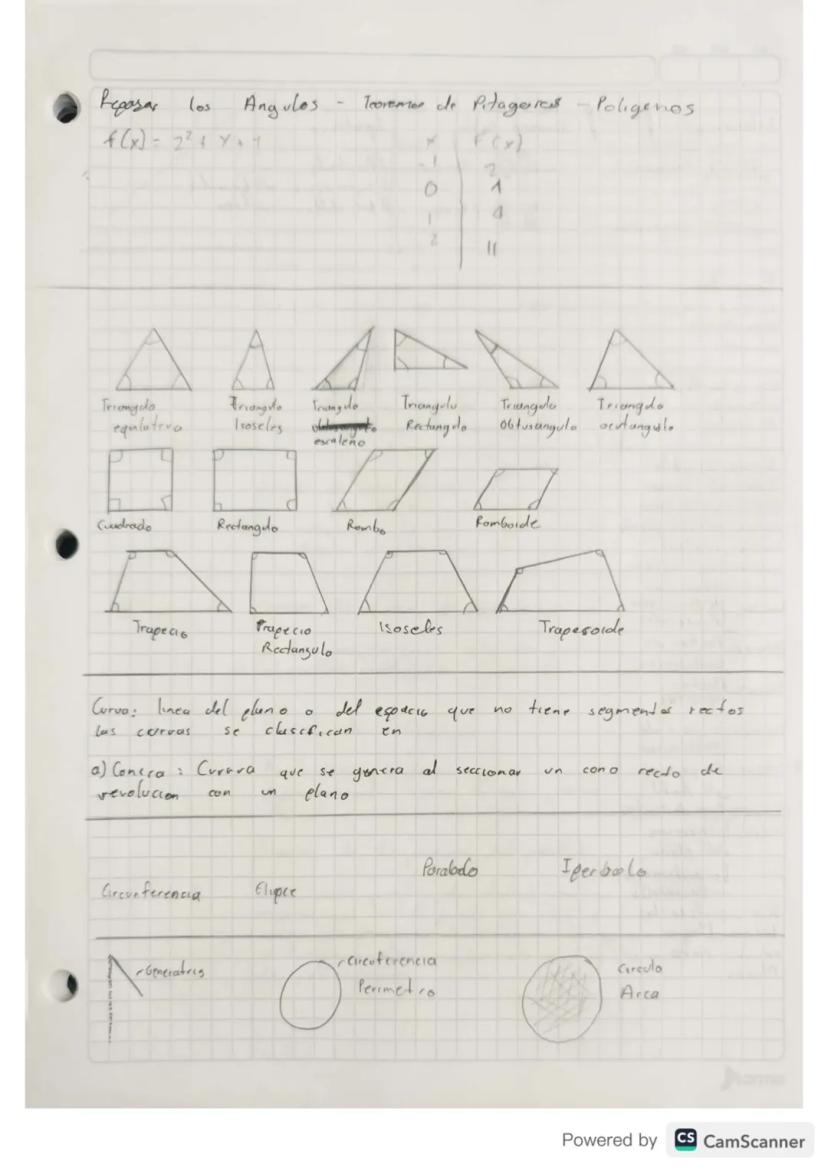 Repasar los Angulos - Teoremas de Pitagoras - Poligonos
f(x) = 2² + x + 1
x f(x)
-1 2
0 1
1 4
2 11
Triangulo equilatero
Triangulo Isoseles
Triangulo escaleno
Triangulo Rectangulo
Triangulo Obtusangulo
Triangulo acutangulo
Cuadrado
Rectangulo
Rombo
Romboide
Trapecio
Trapecio Rectangulo
Isoseles
Trapesoide
Curva: linea del plano o del espacio que no tiene segmentos rectos
las curvas se clasifican en
a) Conica : Curva que se genera al seccionar un cono recto de
revolucion con un plano
Circunferencia Elipce Parabola Iperbola
Generatris
Circuferencia
Perimetro
Circulo
Area
Powered by CS CamScanner